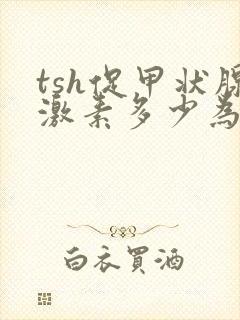 tsh促甲状腺
激素多少為
白衣買酒